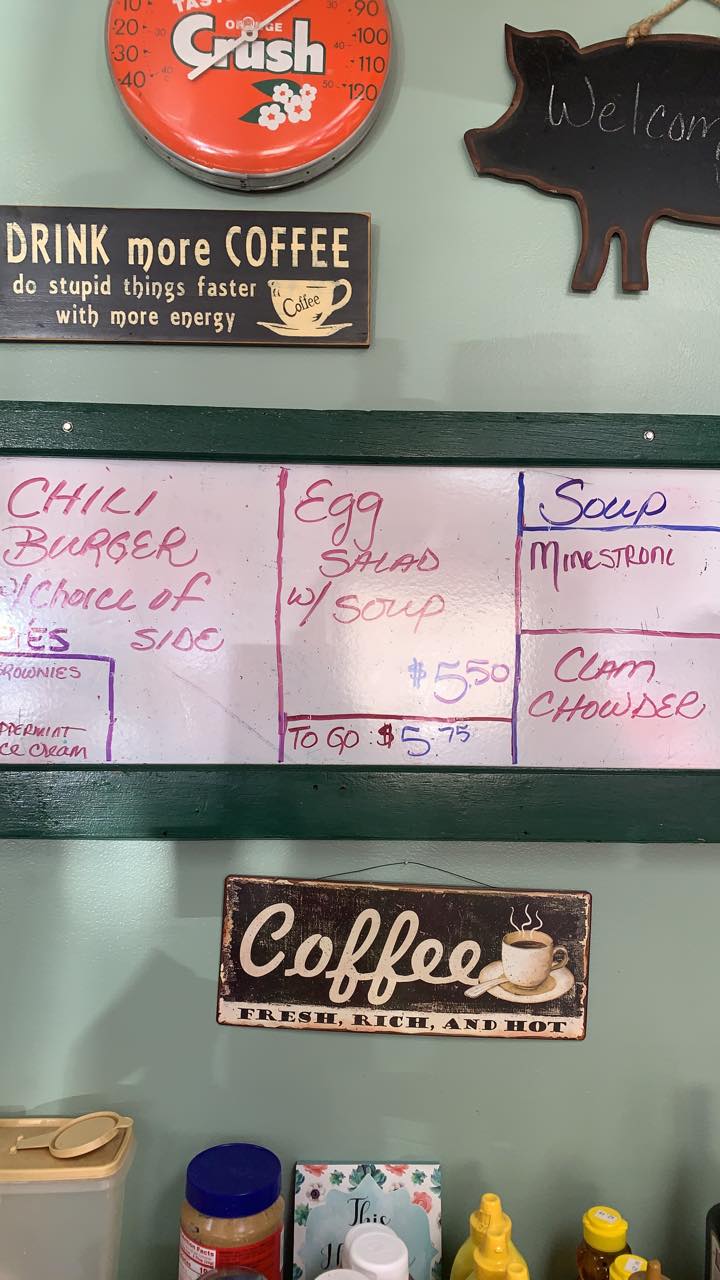 TAST
ORANGE
Crush
-10
-20
-30
-40
30
40
90
100
110
120
40
50
Welcom
DRINK more COFFEE
do stupid things faster
with more energy
Coffee
CHILI
BURGER
w/ choice of
SIDE
PIES
ROWNIES
PPERMINT
ce cream
Egg
SALAD
w/ Soup
$5.50
To Go $5.75
Soup
MINESTRONI
CLAM
CHOWDER
Coffee
FRESH, RICH, AND HOT
This